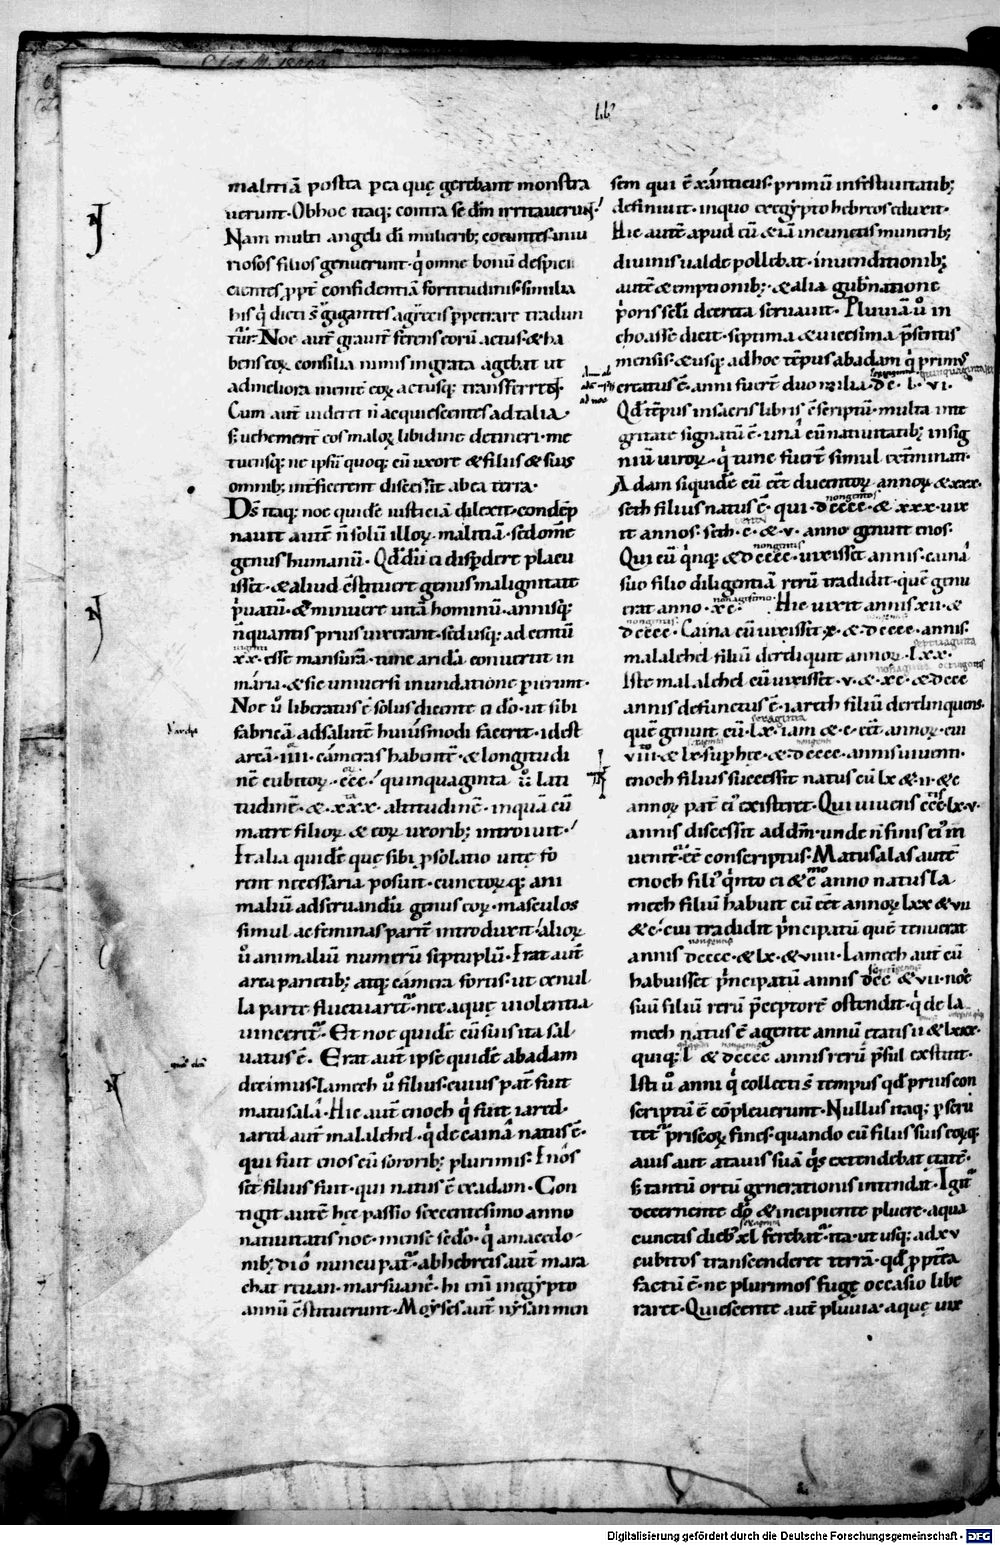 lib
malitiā postea p ea quę gerebant monstra
uerunt. Ob hoc itaq; contra se dm̄ irritauerunt.
Nam multi angeli di mulierib; coeuntes iniu
riosos filios genuerunt. q̇ omne bonū despici
cientes ppt̄ confidentiā fortitudinis. similia
his q̇ dicti s̄ gigantes a grecis ppetrare tradun
tur. Noe aut̄ grauit̄ ferens eorū actus. & ha
bens eoꝝ consilia nimis ingrata agebat ut
ad meliora mente eoꝝ actusq; transferret.
Cum aut̄ uideret n̄ acquiescentes ad talia.
s̄ uehement̄ eos maloꝝ libidine detineri. me
tuensq; ne ipsū quoq; cū uxore & filiis & suis
omnib; int̄ficerent discessit ab ea terra.
Ds̄ itaq; noe quidē iusticiā dilexit. condēp
nauit autē n̄ solū illoꝝ malitiā. sed om̄e
genus humanū. Qd dū ei disp̄dere placu
isset. & aliud c̄stituere genus malignitate
ṗuatū. & minuere uitā hominū. annisq;
n̄ quantis prius uixerant. sed usq; ad centū
uiginti
xx. esse mansurā. tunc aridā conuertit in
maria. & sic uniuersi inundatione perierunt.
Noe ū liberatus ē solus dicente ei dō. ut sibi
fabricā ad salutē huiusmodi faceret. id est
arcā. iiii. cameras habentē & longitudi
nē cubitoꝝ. ccc. quinquaginta ū lati
tudinē. & xxx. altitudinē. in quā cū
matre filioꝝ & eoꝝ uxorib; introiuit.
Et alia quidē quę sibi p solatio uite fo
rent necessaria posuit. cunctoꝝ q; ani
maliū ad seruandū genus eoꝝ masculos
simul ac feminas parit̄ introduxit. alioꝝ
ū animaliū numerū septuplū. Erat aut̄
arca parietib; atq; camera fortis. ut ce nul
la parte fluctuaret. nec aque uiolentia
uinceret. Et noe quidē cū suis ita sal
uatus ē. Erat aut̄ ipse quidē ab adam
decimus. Lamech ū filius. cuius pat̄ fuit
matusalā. Hic autē enoch q̇ fuit iared.
iared aut̄ malalehel. q̇ de cainā natus ē.
qui fuit enos cū sororib; plurimis. Enos
seth filius fuit. qui natus ē ex adam. Con
tigit autē hęc passio sexcentesimo anno
natiuitatis noe. mense sedo. q̇ a macedo
nib; dio nuncupat̄. ab hebreis aut̄ mara
chat riuan. marsuane. hi eni in egypto
annū c̄stituerunt. Moyses aut̄ nysan men
sem qui ē xanticus. primū in festiuitatib;
definiuit. in quo ex egypto hebreos eduxit.
Hic autē apud eū & iā in cunctis munerib;
diuinis ualde pollebat. in uenditionib;
autē & emptionib;. & alia gub̄natione
ṗoris scli decreta seruauit. Pluuiā ū in
choasse dicit. septima & uicesima p̄sentis
mensis. & usq; ad hoc tempus ab adam q̇ primus
creatus ē. anni fuer̄ duo milia. dc. l. vi.
Qd tēpus in sacris libris ē scriptū. multa inte
gritate signatū ē. unā cū natiuitatib; insig
niū uiroꝝ. q̇ tunc fuer̄ simul ext̄minati.
Adam siquidē cū eēt ducentoꝝ annoꝝ & xxx.
seth filius natus ē. qui. dcccc. & xxx. uix
nongentos
it annos. seth. c. & v. anno genuit enos.
Qui cū q̇nq; & dcccc. uixisset annis. cainā
nongentis
suo filio diligentiā rerū tradidit. quē genu
erat anno. xc. Hic uixit annis xii. &
nonagesimo
dcccc. Caina cū uixisset x. & dcccc. annis.
malalehel filiū dereliquit annoꝝ. lxx.
septuaginta
Iste malalehel cū uixisset. v. & xc. & dccc
annis defunctus ē. iareth filiū derelinquens.
quē genuit cū. lx. iam & c. eēt annoꝝ. cui
sexaginta
viiii. & lx. sup hęc. & dcccc. annis uiuenti.
enoch filius successit natus cū lx & ii. & c
annoꝝ pat̄ ei existeret. Qui uiuens ccc. lx. v.
annis discessit ad dm̄. unde n̄ finis ei in
uenit̄ eē conscriptus. Matusalas autē
enoch fili q̇nto ei & c anno natus la
mech filiū habuit cū eēt annoꝝ lxx & vii
& c. cui tradidit ṗncipatū quē tenuerat
annis dcccc. & lx. & viiii. Lamech aut̄ cū
nongentis
habuisset ṗncipatū annis dcc & vii. noe
suū filiū rerū p̄ceptorē ostendit. q̇ de la
mech natus ē agente annū etatis ii & lxxx.
quiq; l & dcccc annis rerū p̄sul exstitit.
Isti ū anni q̇ collecti s̄ tempus qd prius con
scriptū ē cōpleuerunt. Nullus itaq; p scru
tet̄ priscoꝝ fines. quando cū filiis suis eorq;
auis aut atauis suā q̇s extendebat etatē.
s̄ tantū ortū generationis intendit. Igit̄
decernente dō & incipiente pluere. aqua
cunctis dieb xl ferebat̄. ita. ut usq; ad xv
cubitos transcenderet terrā. qd ppt̄ea
factū ē. ne plurimos fugę occasio libe
raret. Quiescente aut̄ pluuia. aque uix
Digitalisierung gefördert durch die Deutsche Forschungsgemeinschaft - DFG